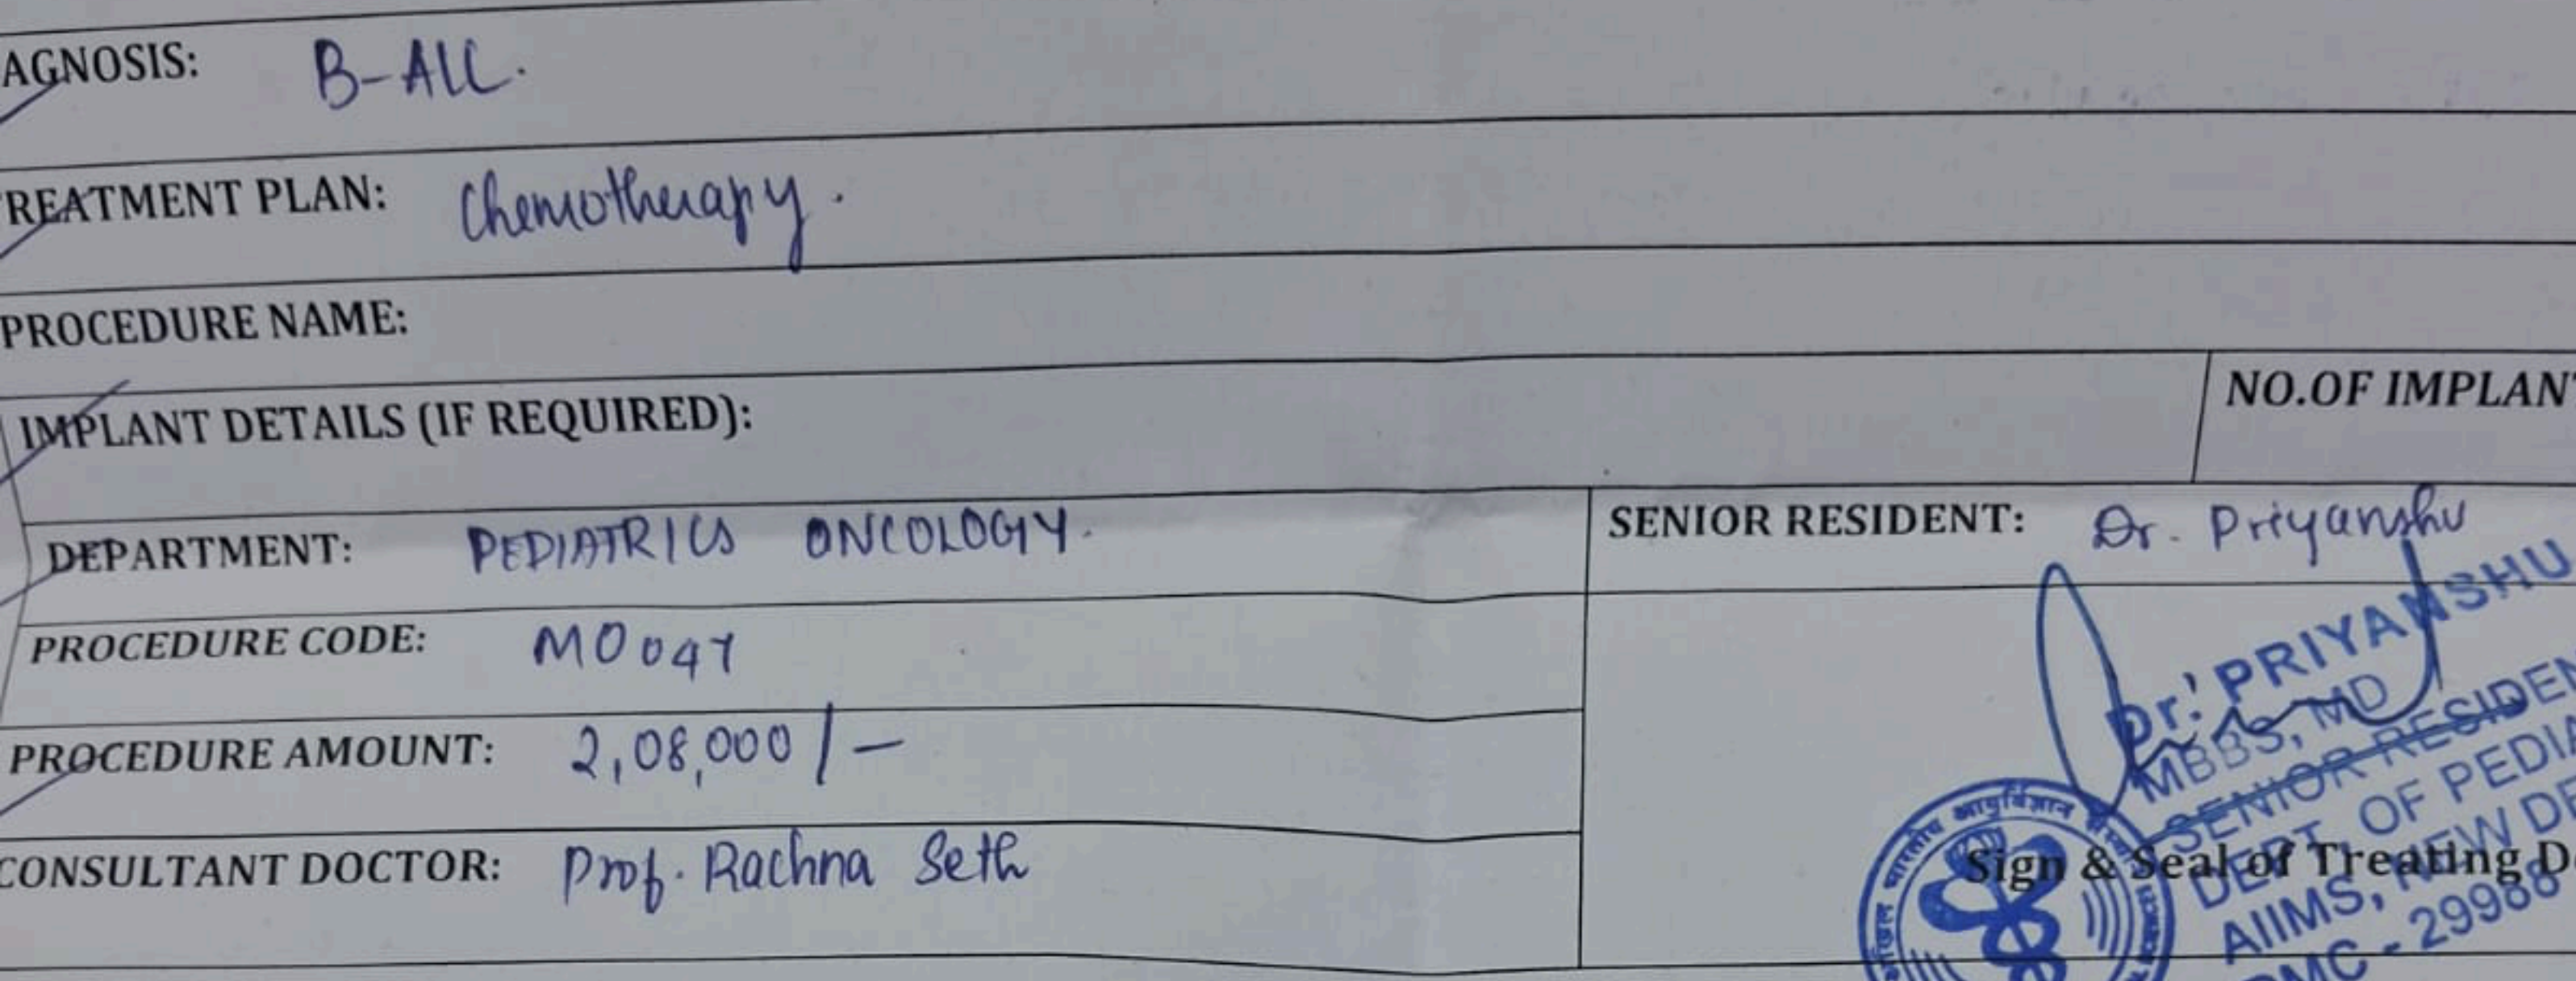 AGNOSIS: B-ALL.
REATMENT PLAN: Chemotherapy.
PROCEDURE NAME:
IMPLANT DETAILS (IF REQUIRED): NO.OF IMPLANT
DEPARTMENT: PEDIATRICS ONCOLOGY.
SENIOR RESIDENT: Dr. Priyanshu
PROCEDURE CODE: MO047
PROCEDURE AMOUNT: 2,08,000/-
CONSULTANT DOCTOR: Prof. Rachna Seth
Dr. PRIYANSHU
MBBS, MD
SENIOR RESIDEN
DEPT. OF PEDIA
AIIMS, NEW DE
DMC - 29988
Sign & Seal of Treating D
भारतीय आयुर्विज्ञान